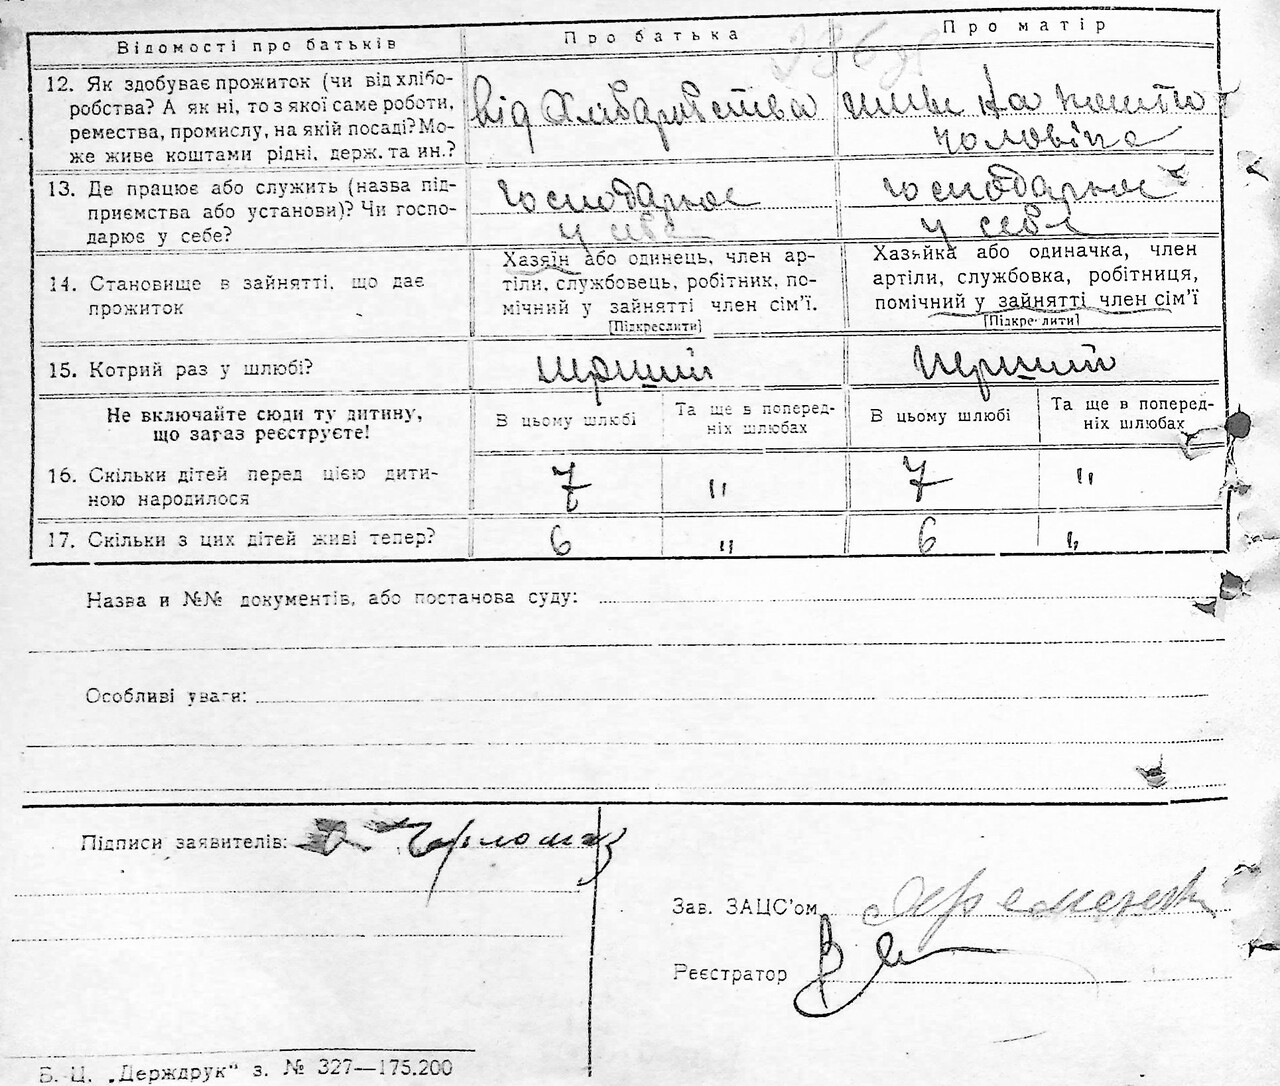 Відомості про батьків
Про батька
Про матір
12. Як здобуває прожиток (чи від хлібо-
робства? А як ні, то з якої саме роботи,
ремества, промислу, на якій посаді? Мо-
же живе коштами рідні, держ. та ин.?
від Хліборобства
живе на кошти
чоловіка
13. Де працює або служить (назва під-
приємства або установи)? Чи госпо-
дарює у себе?
господарює
у себе
господарює
у себе
14. Становище в зайнятті, що дає
прожиток
Хазяїн або одинець, член ар-
тіли, службовець, робітник, по-
мічний у зайнятті член сім'ї.
[Підкреслити]
Хазяйка або одиначка, член
артіли, службовка, робітниця,
помічний у зайнятті член сім'ї
[Підкреслити]
15. Котрий раз у шлюбі?
перший
перший
Не включайте сюди ту дитину,
що зараз реєструєте!
В цьому шлюбі
Та ще в поперед-
ніх шлюбах
В цьому шлюбі
Та ще в поперед-
ніх шлюбах
16. Скільки дітей перед цією дити-
ною народилося
7 " 7 "
17. Скільки з цих дітей живі тепер?
6 " 6 "
Назва и №№ документів, або постанова суду:
Особливі уваги:
Підписи заявителів:
Зав. ЗАЦС'ом
Реєстратор
Б. Ц. „Держдрук" з. № 327—175.200